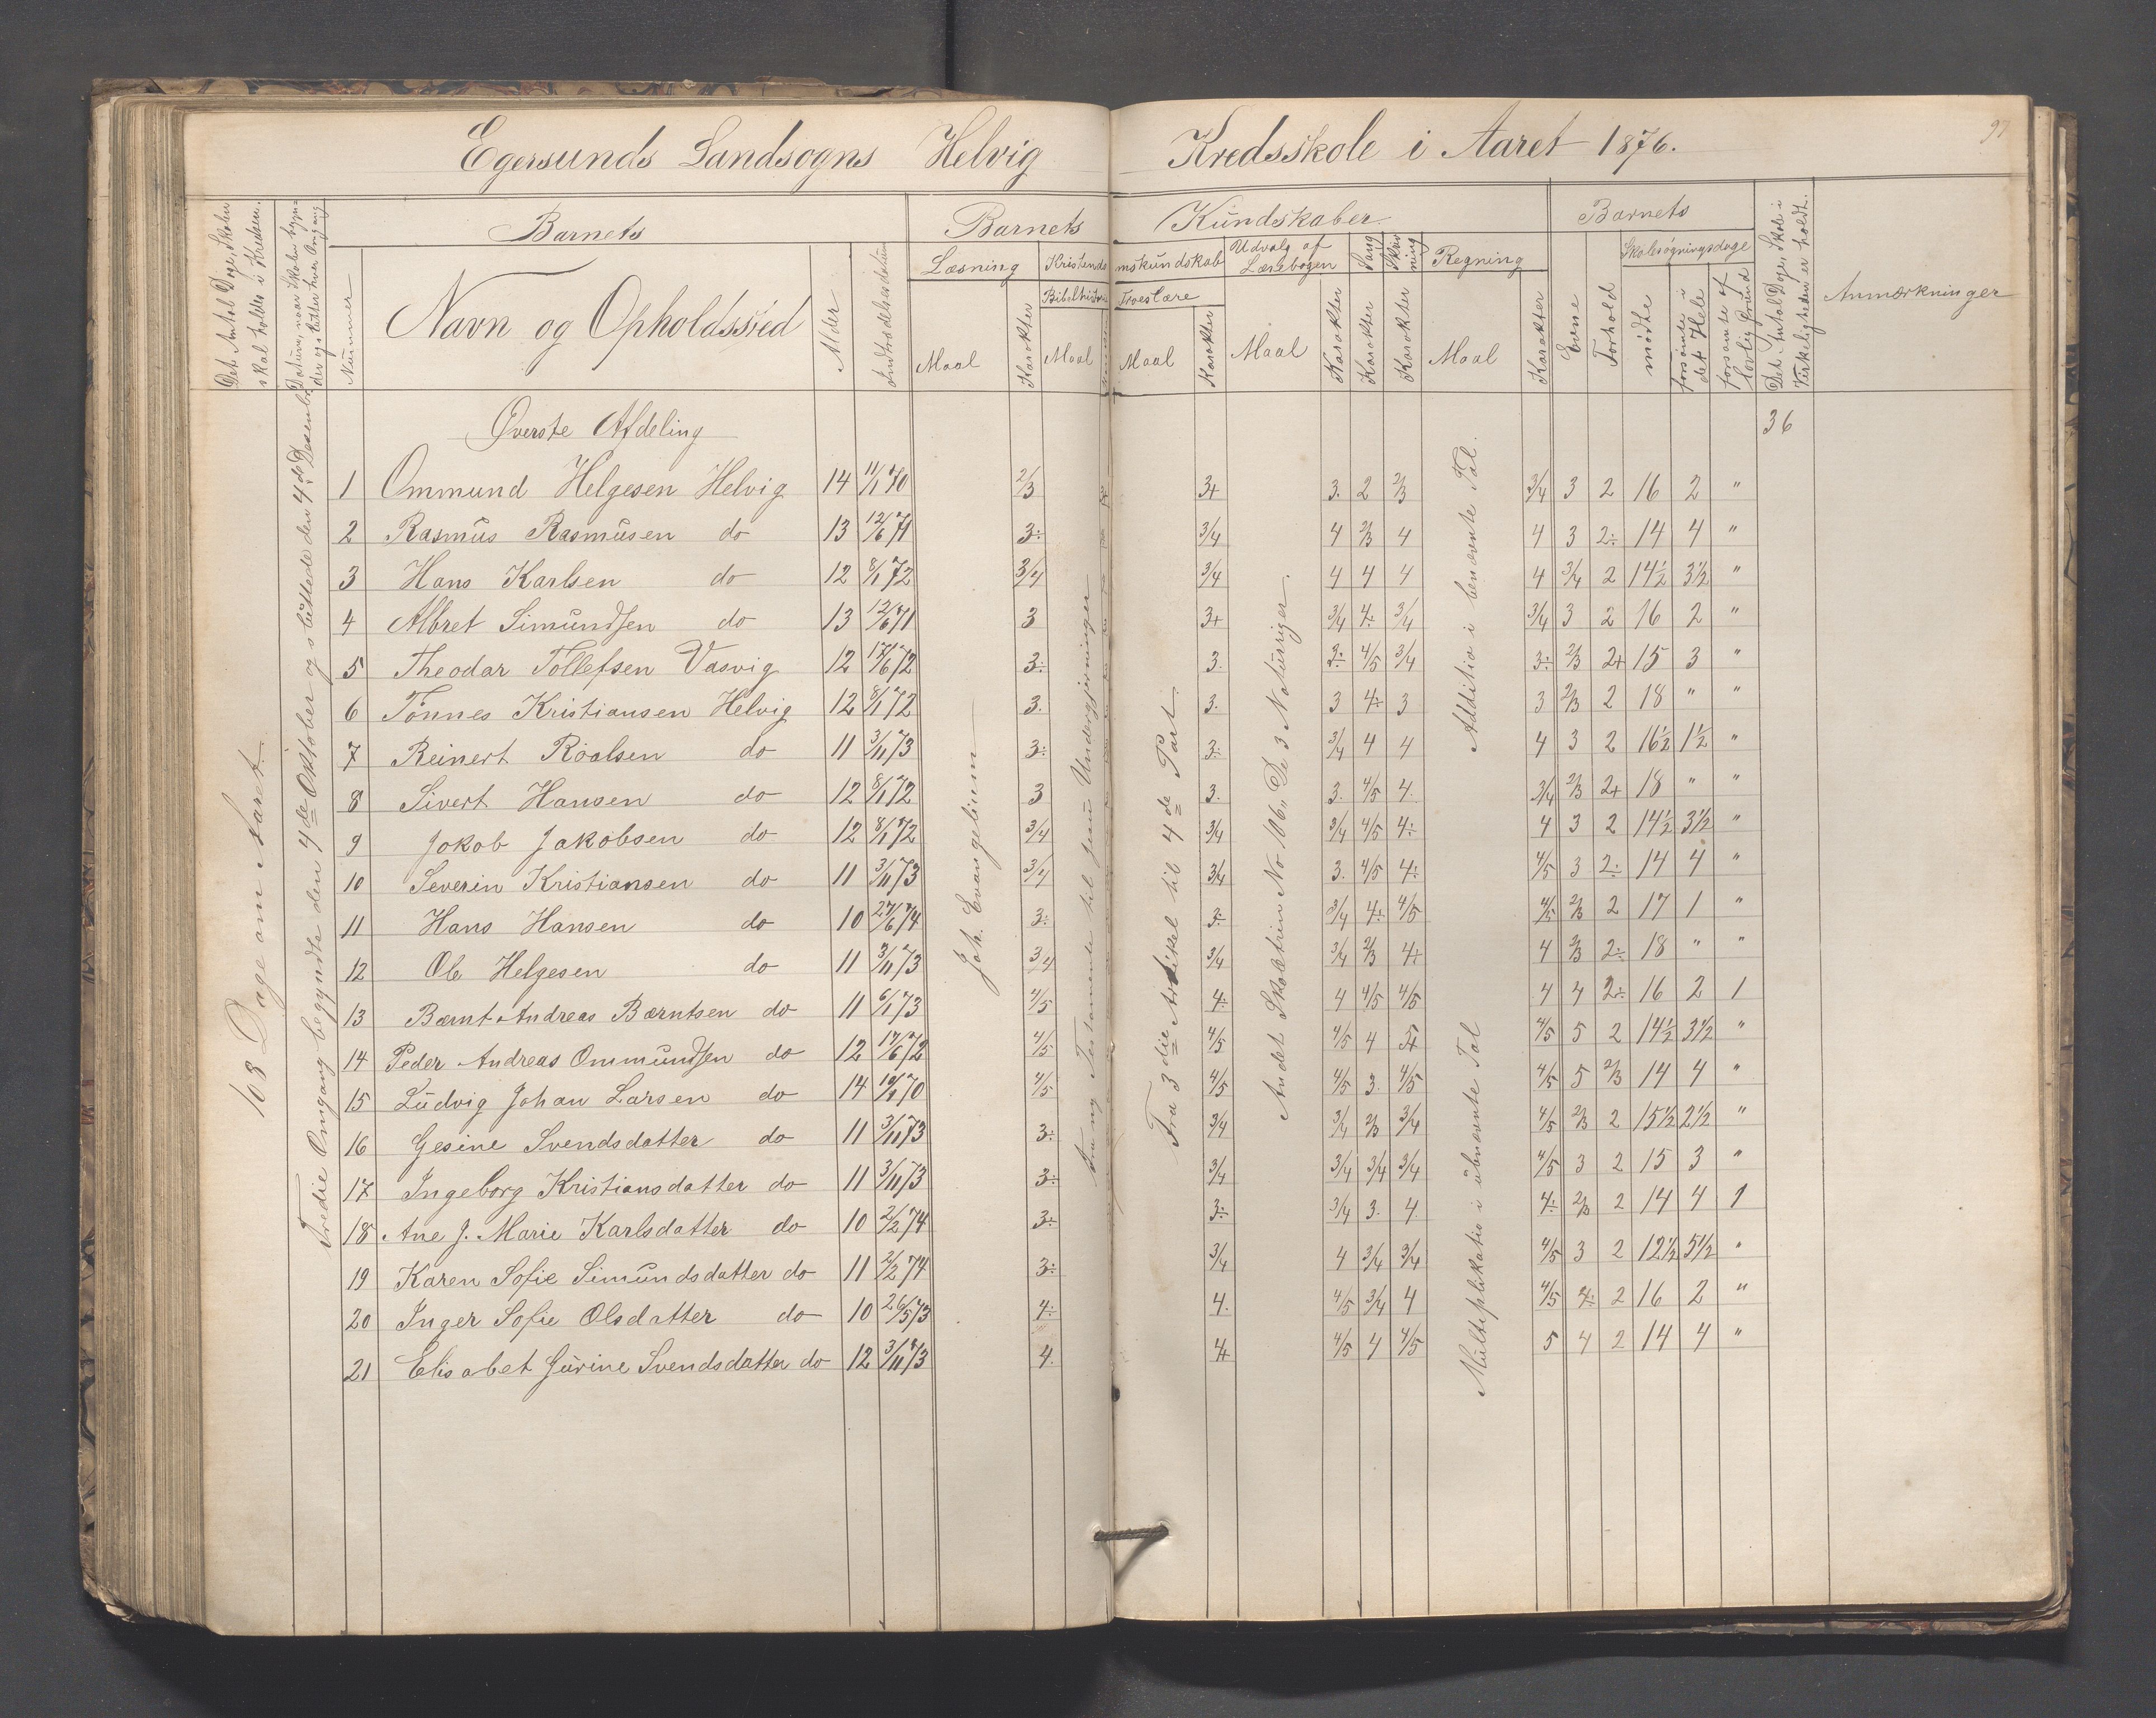 97
Egersunds Landsogns Helvig Kredsskole i Aaret 1876.
Det Antal Dage, Skolen skal holdes i Kredsen.
Datum, naar Skolen begynder og slutter hver Omgang
Barnets
Nummer
Navn og Opholdssted
Alder
Indtrædelsesdatum
Barnets Kundskaber
Læsning
Maal
Karakter
Kristendomskundskab
Bibelhistorie
Maal
Troeslære
Maal
Karakter
Udvalg af Læsebogen
Maal
Karakter
Sang
Karakter
Skrivning
Karakter
Regning
Maal
Karakter
Barnets
Evne
Forhold
Skolesøgningsdage
mødte
forsømte i det Hele
forsømte af lovlig Grund
Det Antal Dage, Skole i Virkeligheden er holdt.
Anmærkninger
168 Dage om Aaret.
Tredie Omgang begyndte den 4de Oktober og sluttede den 4de Desember
Joh. Evangelium
Fra ny Testamente til Jesu Undergjerninger
Fra 3die Artikel til 4de Part.
Andet Skoletrin No 106, De 3 Naturriger.
Addition i benævnte Tal.
Multiplikation i übnævnte Tal
Øverste Afdeling 36
1 Ommund Helgesen Helvig 14 11/1 70 2/3 3+ 3. 2 2/3 3/4 3 2 16 2 "
2 Rasmus Rasmusen do 13 12/6 71 3÷ 3/4 4 2/3 4 4 3 2÷ 14 4 "
3 Hans Karlsen do 12 8/1 72 3/4 3/4 4 4 4 4 3/4 2 14½ 3½ "
4 Albret Simundsen do 13 12/6 71 3 3+ 3/4 4÷ 3/4 3/4 3 2 16 2 "
5 Theodar Tollefsen Vasvig 12 17/6 72 3÷ 3. 3÷ 4/5 3/4 3÷ 2/3 2+ 15 3 "
6 Tönnes Kristiansen Helvig 12 8/1 72 3. 3. 3 4÷ 3 3 2/3 2 18 " "
7 Reinert Roalsen do 11 3/11 73 3÷ 3÷ 3/4 4 4 4 3 2 16½ 1½ "
8 Sivert Hansen do 12 8/1 72 3 3. 3. 4/5 4. 3/4 2/3 2+ 18 " "
9 Jokob Jakobsen do 12 8/1 72 3/4 3/4 3/4 4/5 4÷ 4 3 2 14½ 3½ "
10 Severin Kristiansen do 11 3/11 73 3/4 3/4 3. 4/5 4÷ 4/5 3 2÷ 14 4 "
11 Hans Hansen do 10 27/6 74 3÷ 3÷ 3/4 4÷ 4/5 4/5 2/3 2 17 1 "
12 Ole Helgesen do 11 3/11 73 3/4 3/4 3/4 2/3 4÷ 4 2/3 2÷ 18 " "
13 Bærnt Andreas Bærntsen do 11 6/1 73 4/5 4÷ 4 4/5 4/5 4 4 2÷ 16 2 1
14 Peder Andreas Ommundsen do 12 17/6 72 4/5 4/5 4/5 4 5+ 4/5 5 2 14½ 3½ "
15 Ludvig Johan Larsen do 14 4/5 4/5 4/5 3. 4/5 4/5 5 2/3 14 4 "
16 Gesine Svendsdatter do 11 3/11 73 3÷ 3/4 3/4 2/3 3/4 4/5 2/3 2 15½ 2½ "
17 Ingeborg Kristiansdatter do 11 3/11 73 3÷ 3/4 3/4 3/4 3/4 4/5 3 2 15 3 "
18 Ane J. Marie Karlsdatter do 10 2/2 74 3÷ 3÷ 3/4 3. 4. 4÷ 2/3 2 14 4 1
19 Karen Sofie Simundsdatter do 11 2/2 74 3÷ 3/4 4 3/4 3/4 4/5 3 2 12½ 5½ "
20 Inger Sofie Olsdatter do 10 26/5 73 4÷ 4. 4/5 3/4 4 4/5 4÷ 2 16 2 "
21 Elisabet Jürine Svendsdatter do 12 3/11 73 4. 4 4/5 4 4/5 5 4 2 14 4 "